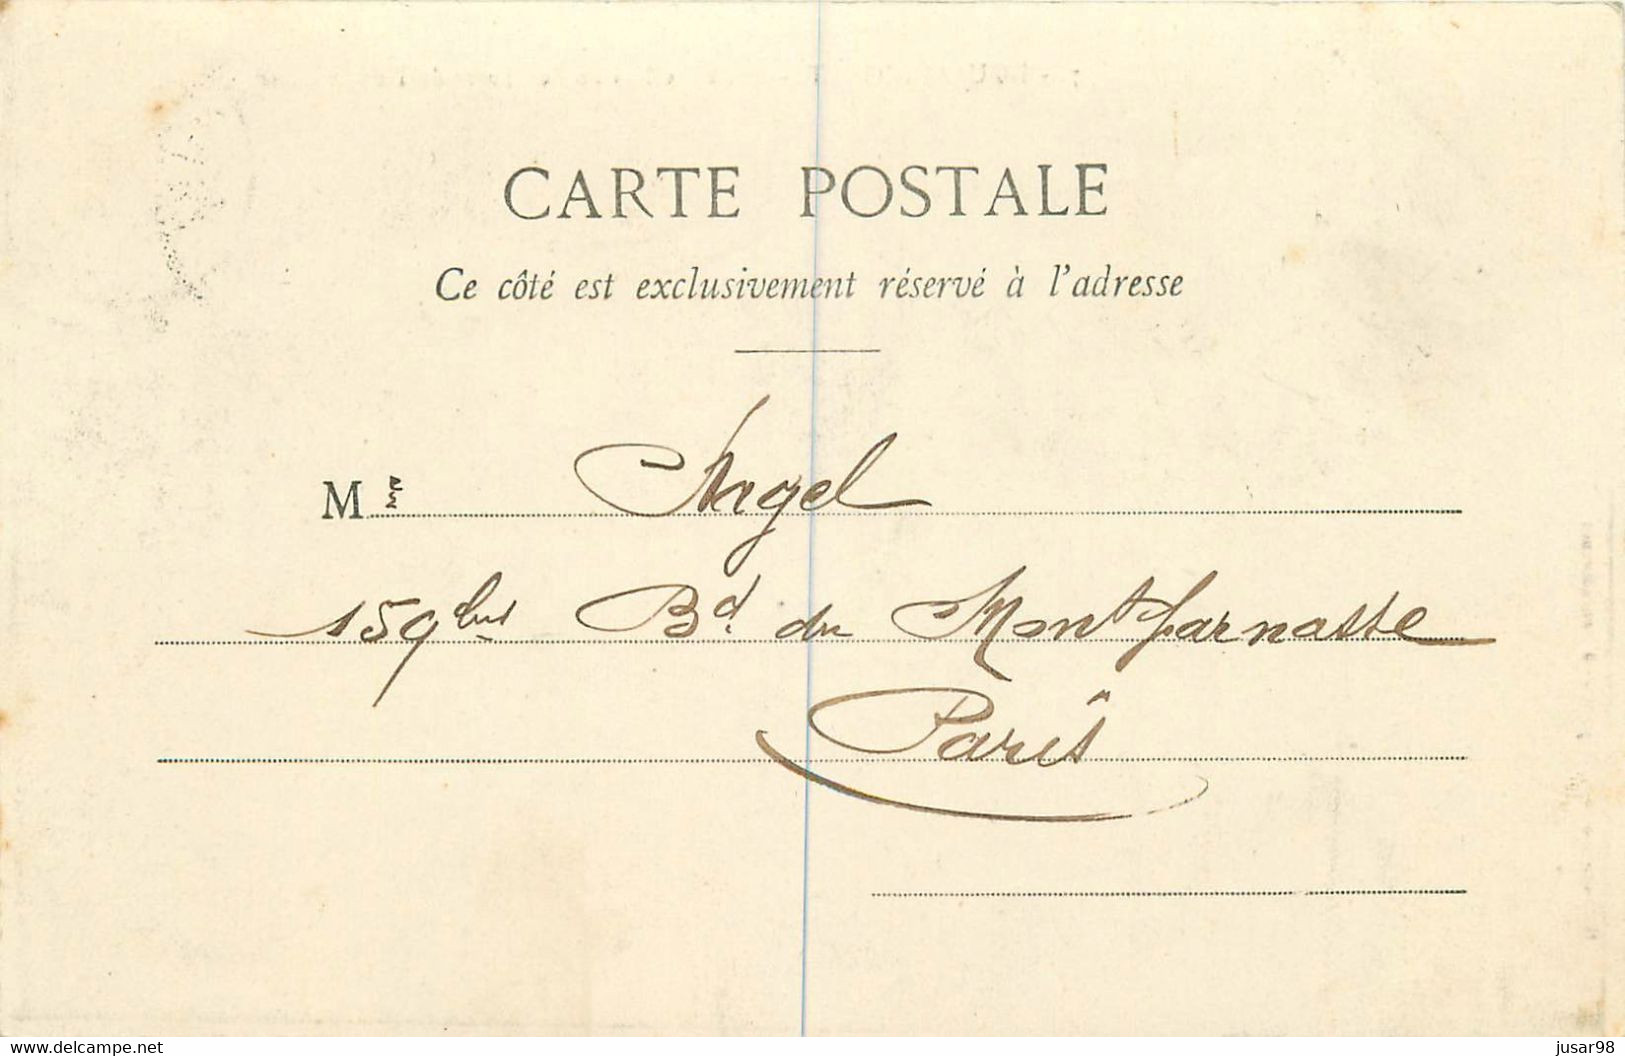 CARTE POSTALE
Ce côté est exclusivement réservé à l'adresse
M Angel
159 bis Bd. du Montparnasse
Paris
www.delcampe.net jusar98